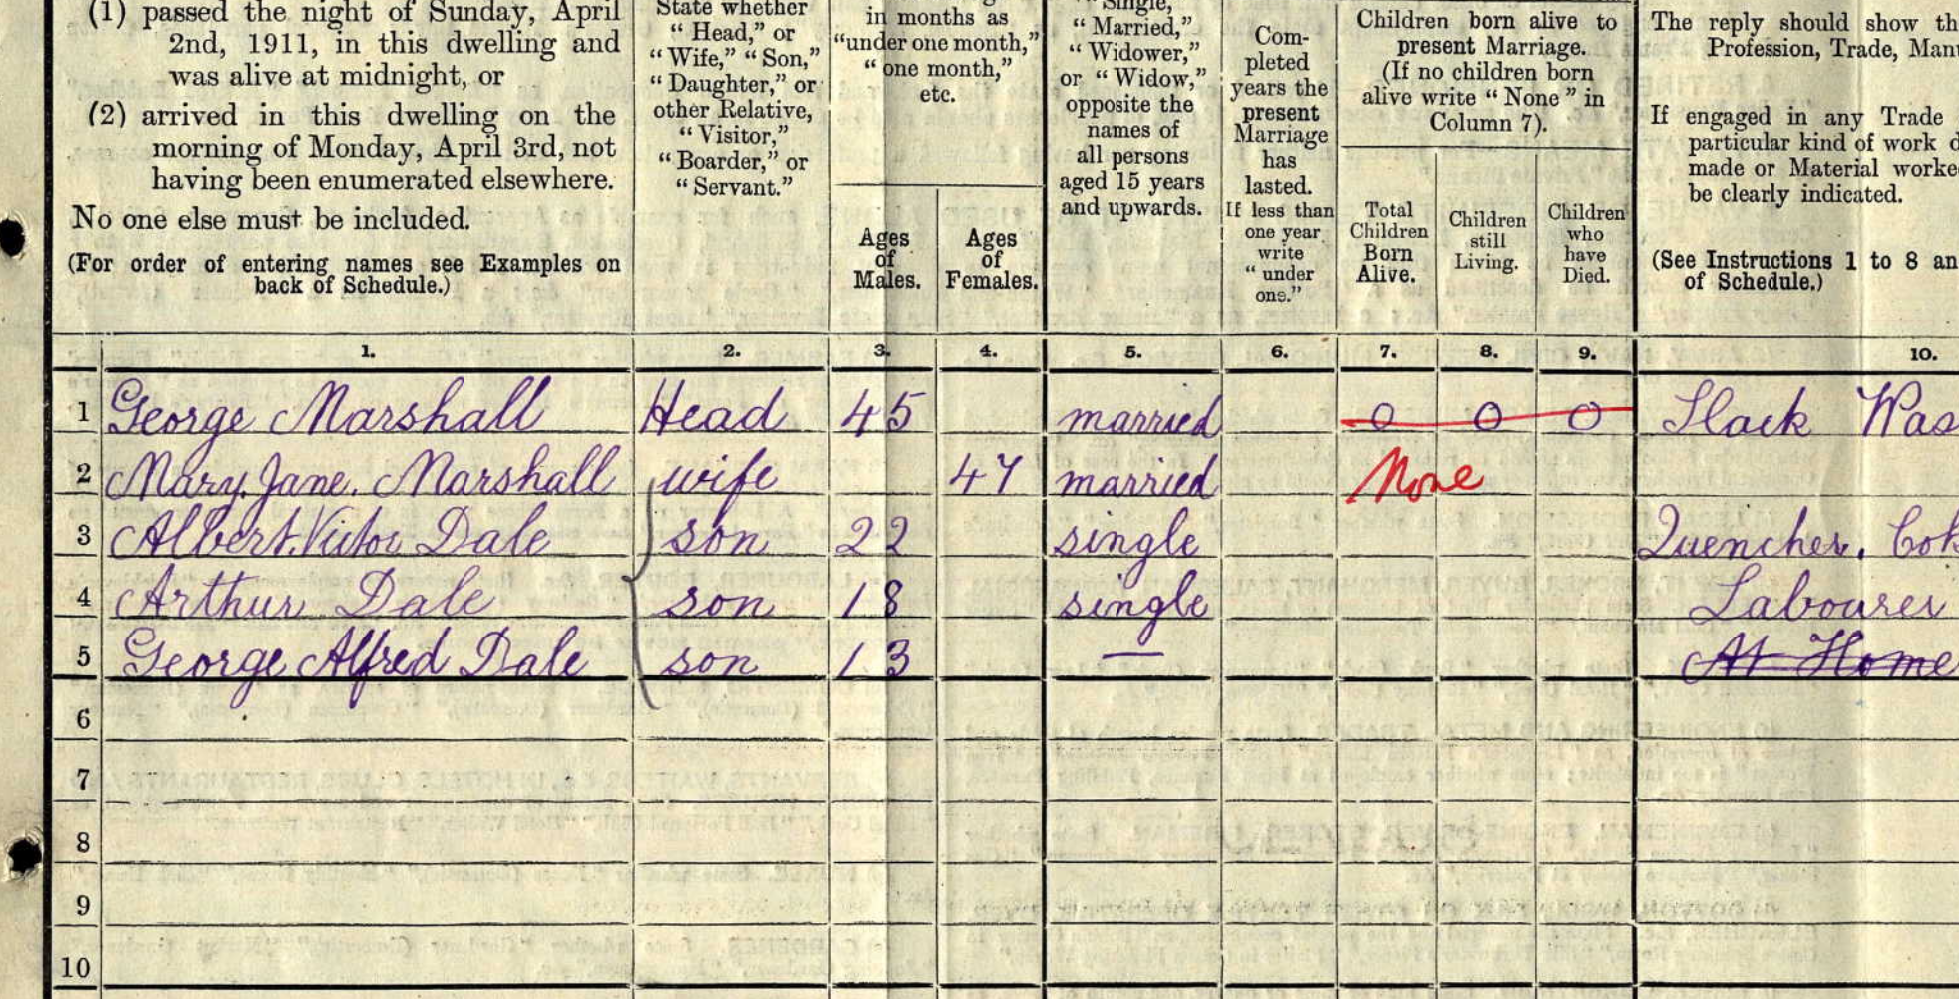 (1) passed the night of Sunday, April
2nd, 1911, in this dwelling and
was alive at midnight, or
(2) arrived in this dwelling on the
morning of Monday, April 3rd, not
having been enumerated elsewhere.
No one else must be included.
(For order of entering names see Examples on
back of Schedule.)
State whether
"Head," or
"Wife," "Son,"
"Daughter," or
other Relative,
"Visitor,"
"Boarder," or
"Servant."
in months as
"under one month,"
"one month,"
etc.
Ages
of
Males.
Ages
of
Females.
"Single,"
"Married,"
"Widower,"
or "Widow,"
opposite the
names of
all persons
aged 15 years
and upwards.
Com-
pleted
years the
present
Marriage
has
lasted.
If less than
one year
write
"under
one."
Children born alive to
present Marriage.
(If no children born
alive write "None" in
Column 7).
Total
Children
Born
Alive.
Children
still
Living.
Children
who
have
Died.
The reply should show th
Profession, Trade, Man
If engaged in any Trade
particular kind of work d
made or Material worke
be clearly indicated.
(See Instructions 1 to 8 an
of Schedule.)
1. 2. 3. 4. 5. 6. 7. 8. 9. 10.
1 George Marshall Head 45 married 0 0 0 Slack Was
2 Mary Jane. Marshall wife 47 married None
3 Albert Victor Dale son 22 single Quencher. Cok
4 Arthur Dale son 18 single Labourer
5 George Alfred Dale son 13 — At Home
6
7
8
9
10